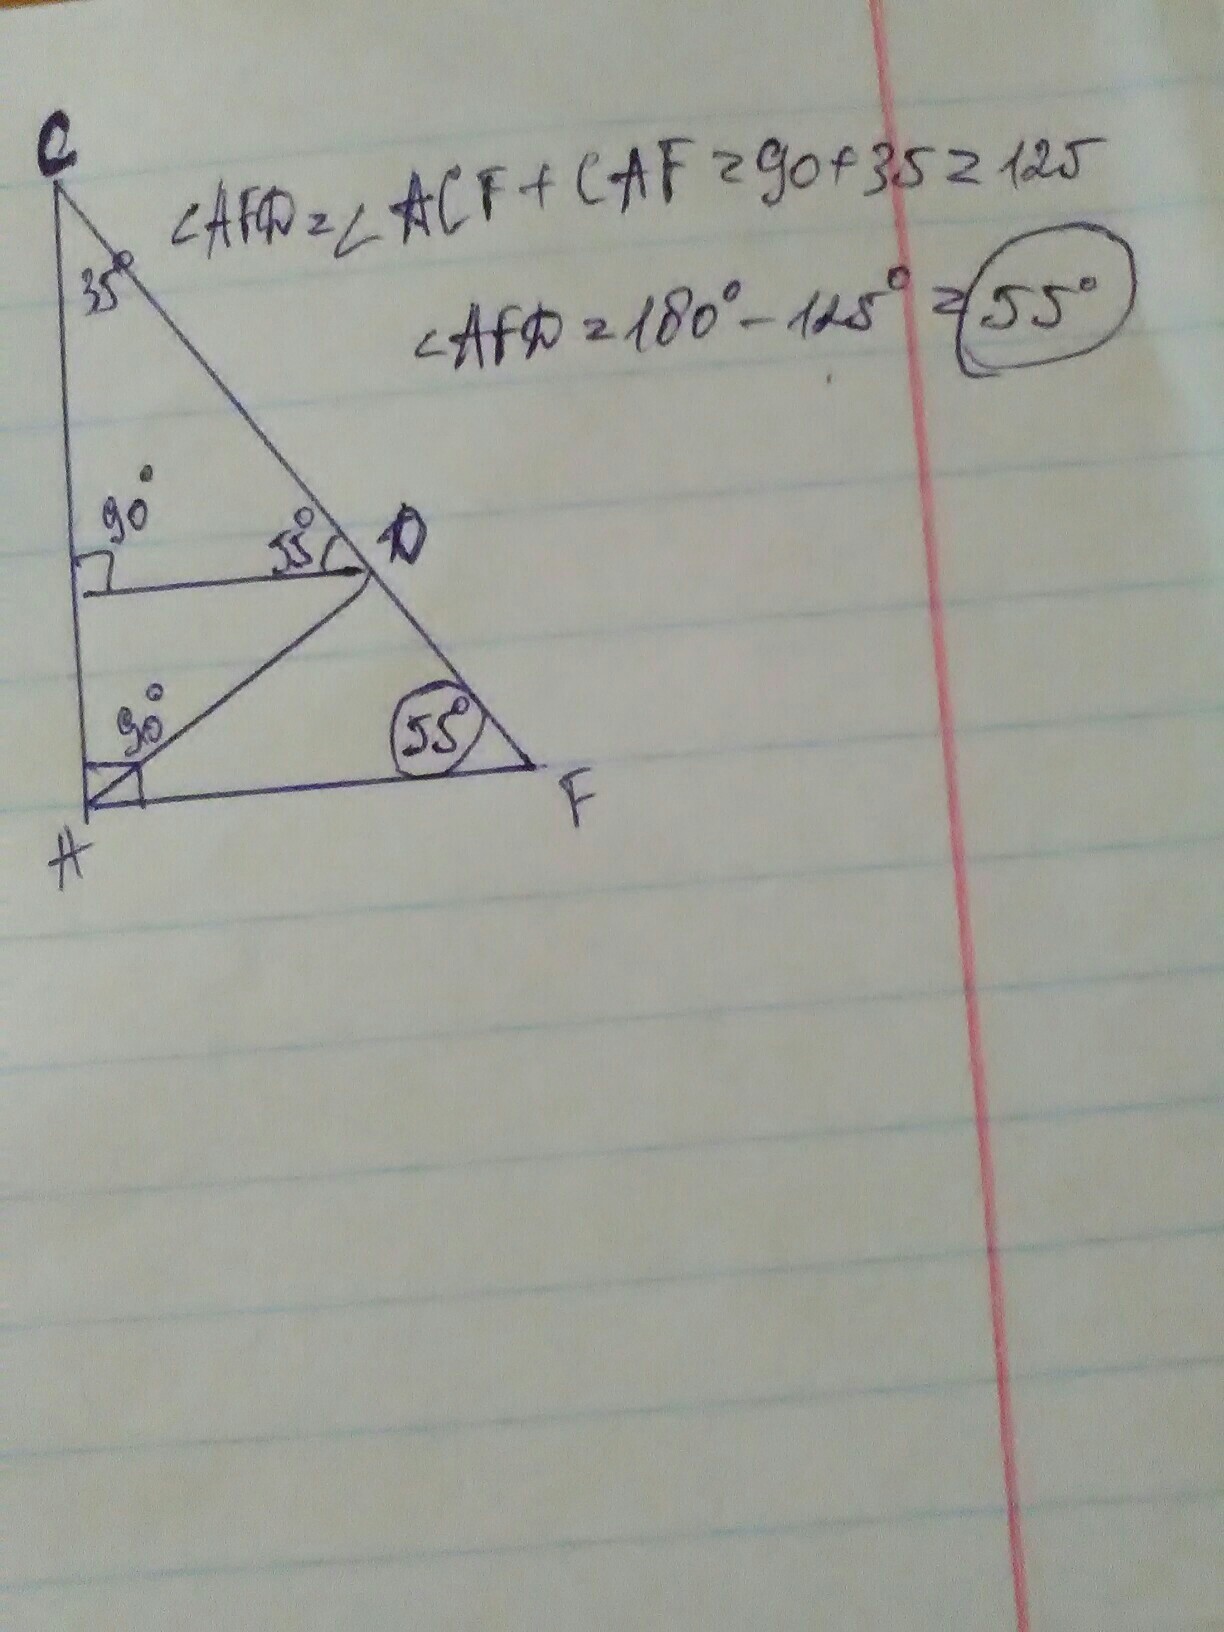 C
∠AFD = ∠ACF + CAF = 90 + 35 = 125
35°
∠AFD = 180° - 125° = 55°
90°
55°
D
90°
55°
F
A